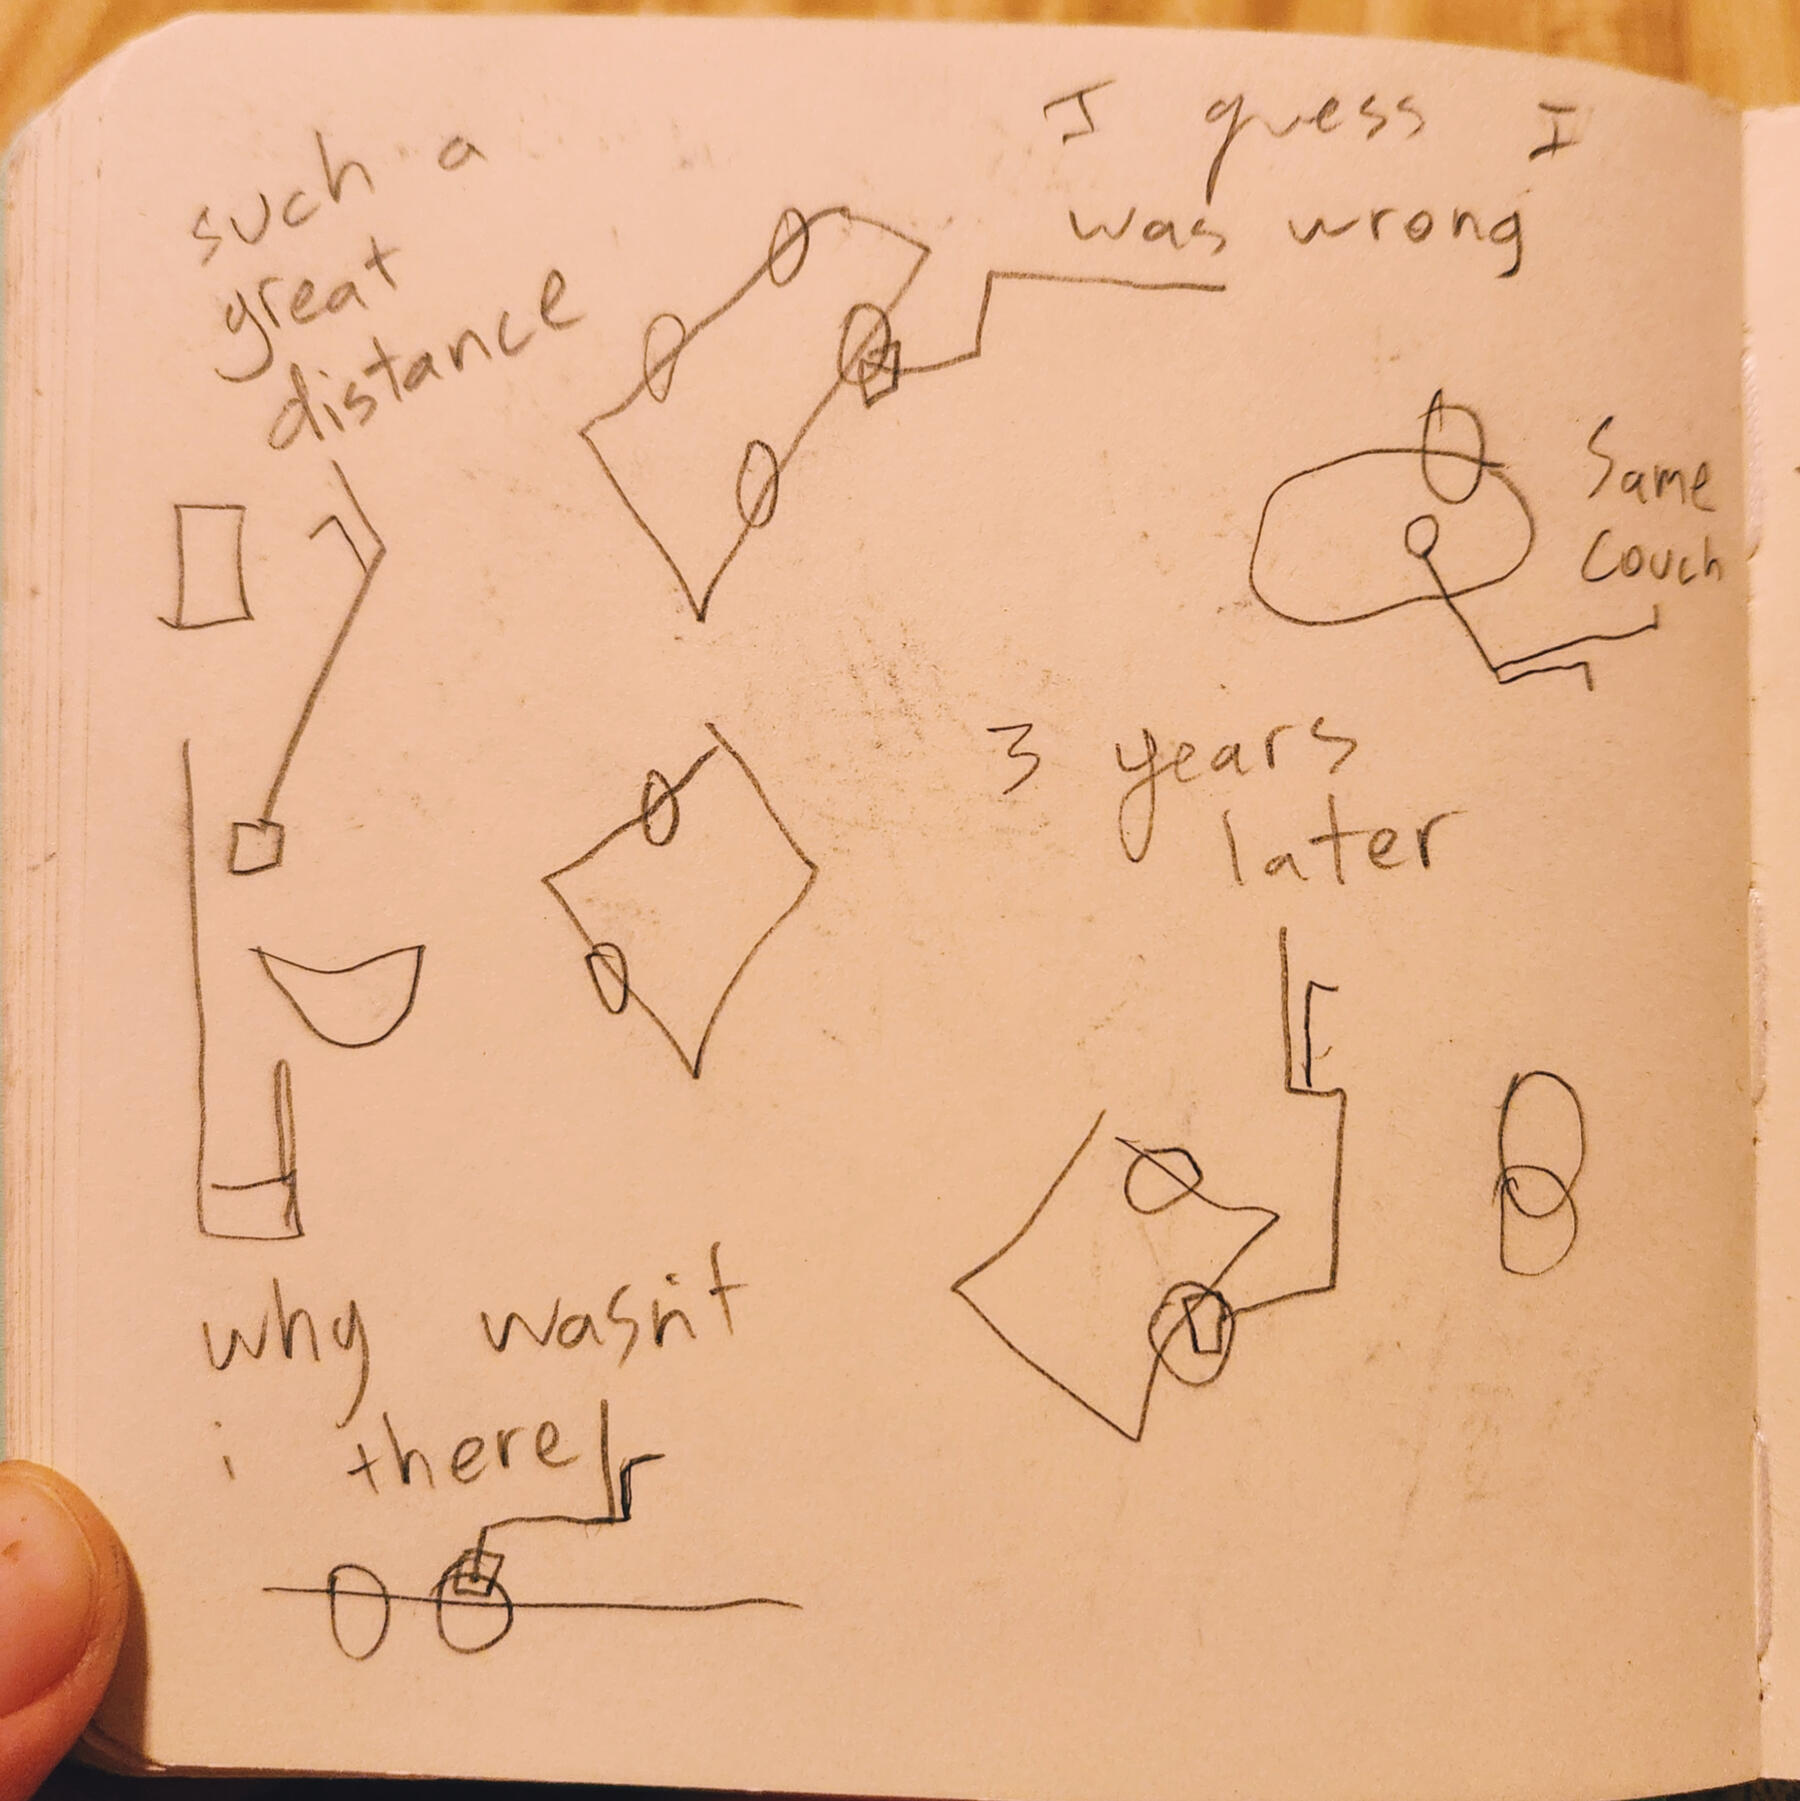 such a
great
distance
I guess I
was wrong
Same
Couch
3 years
later
why wasn't
i there